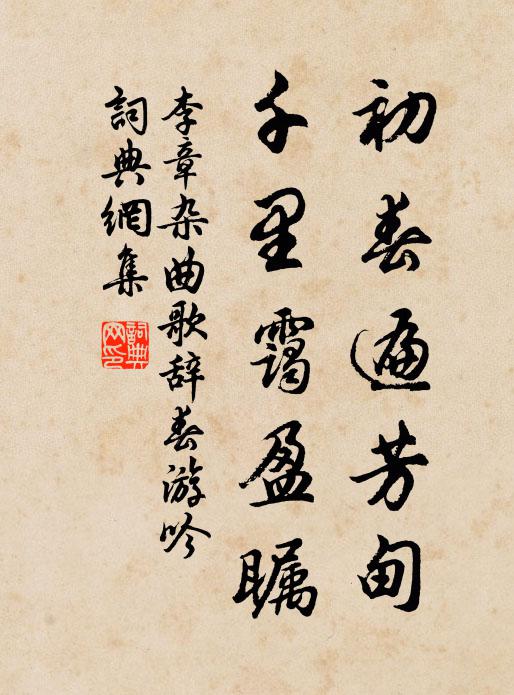 初春遍芳甸
千里霭盈瞩
李章杂曲歌辞春游吟
詞典網集
詞典网印